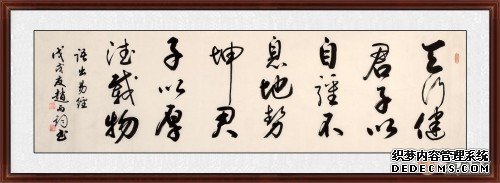 天行健
君子以
自彊不
息地勢
坤君
子以厚
德載物
語出易經
戊戌夏趙書
织梦内容管理系统
DEDECMS.COM